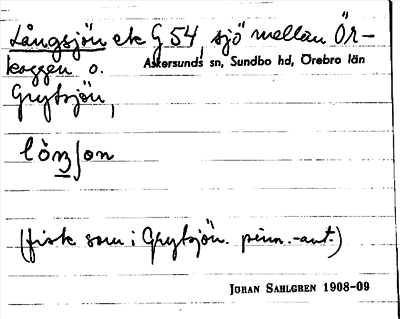 Långsjön ek G 54, sjö mellan Ör-
Askersunds sn, Sundbo hd, Örebro län
kaggen o.
Grytsjön,
lòŋʃon
(fisk som i Grytsjön. pinn.-ant.)
JÖRAN SAHLGREN 1908-09